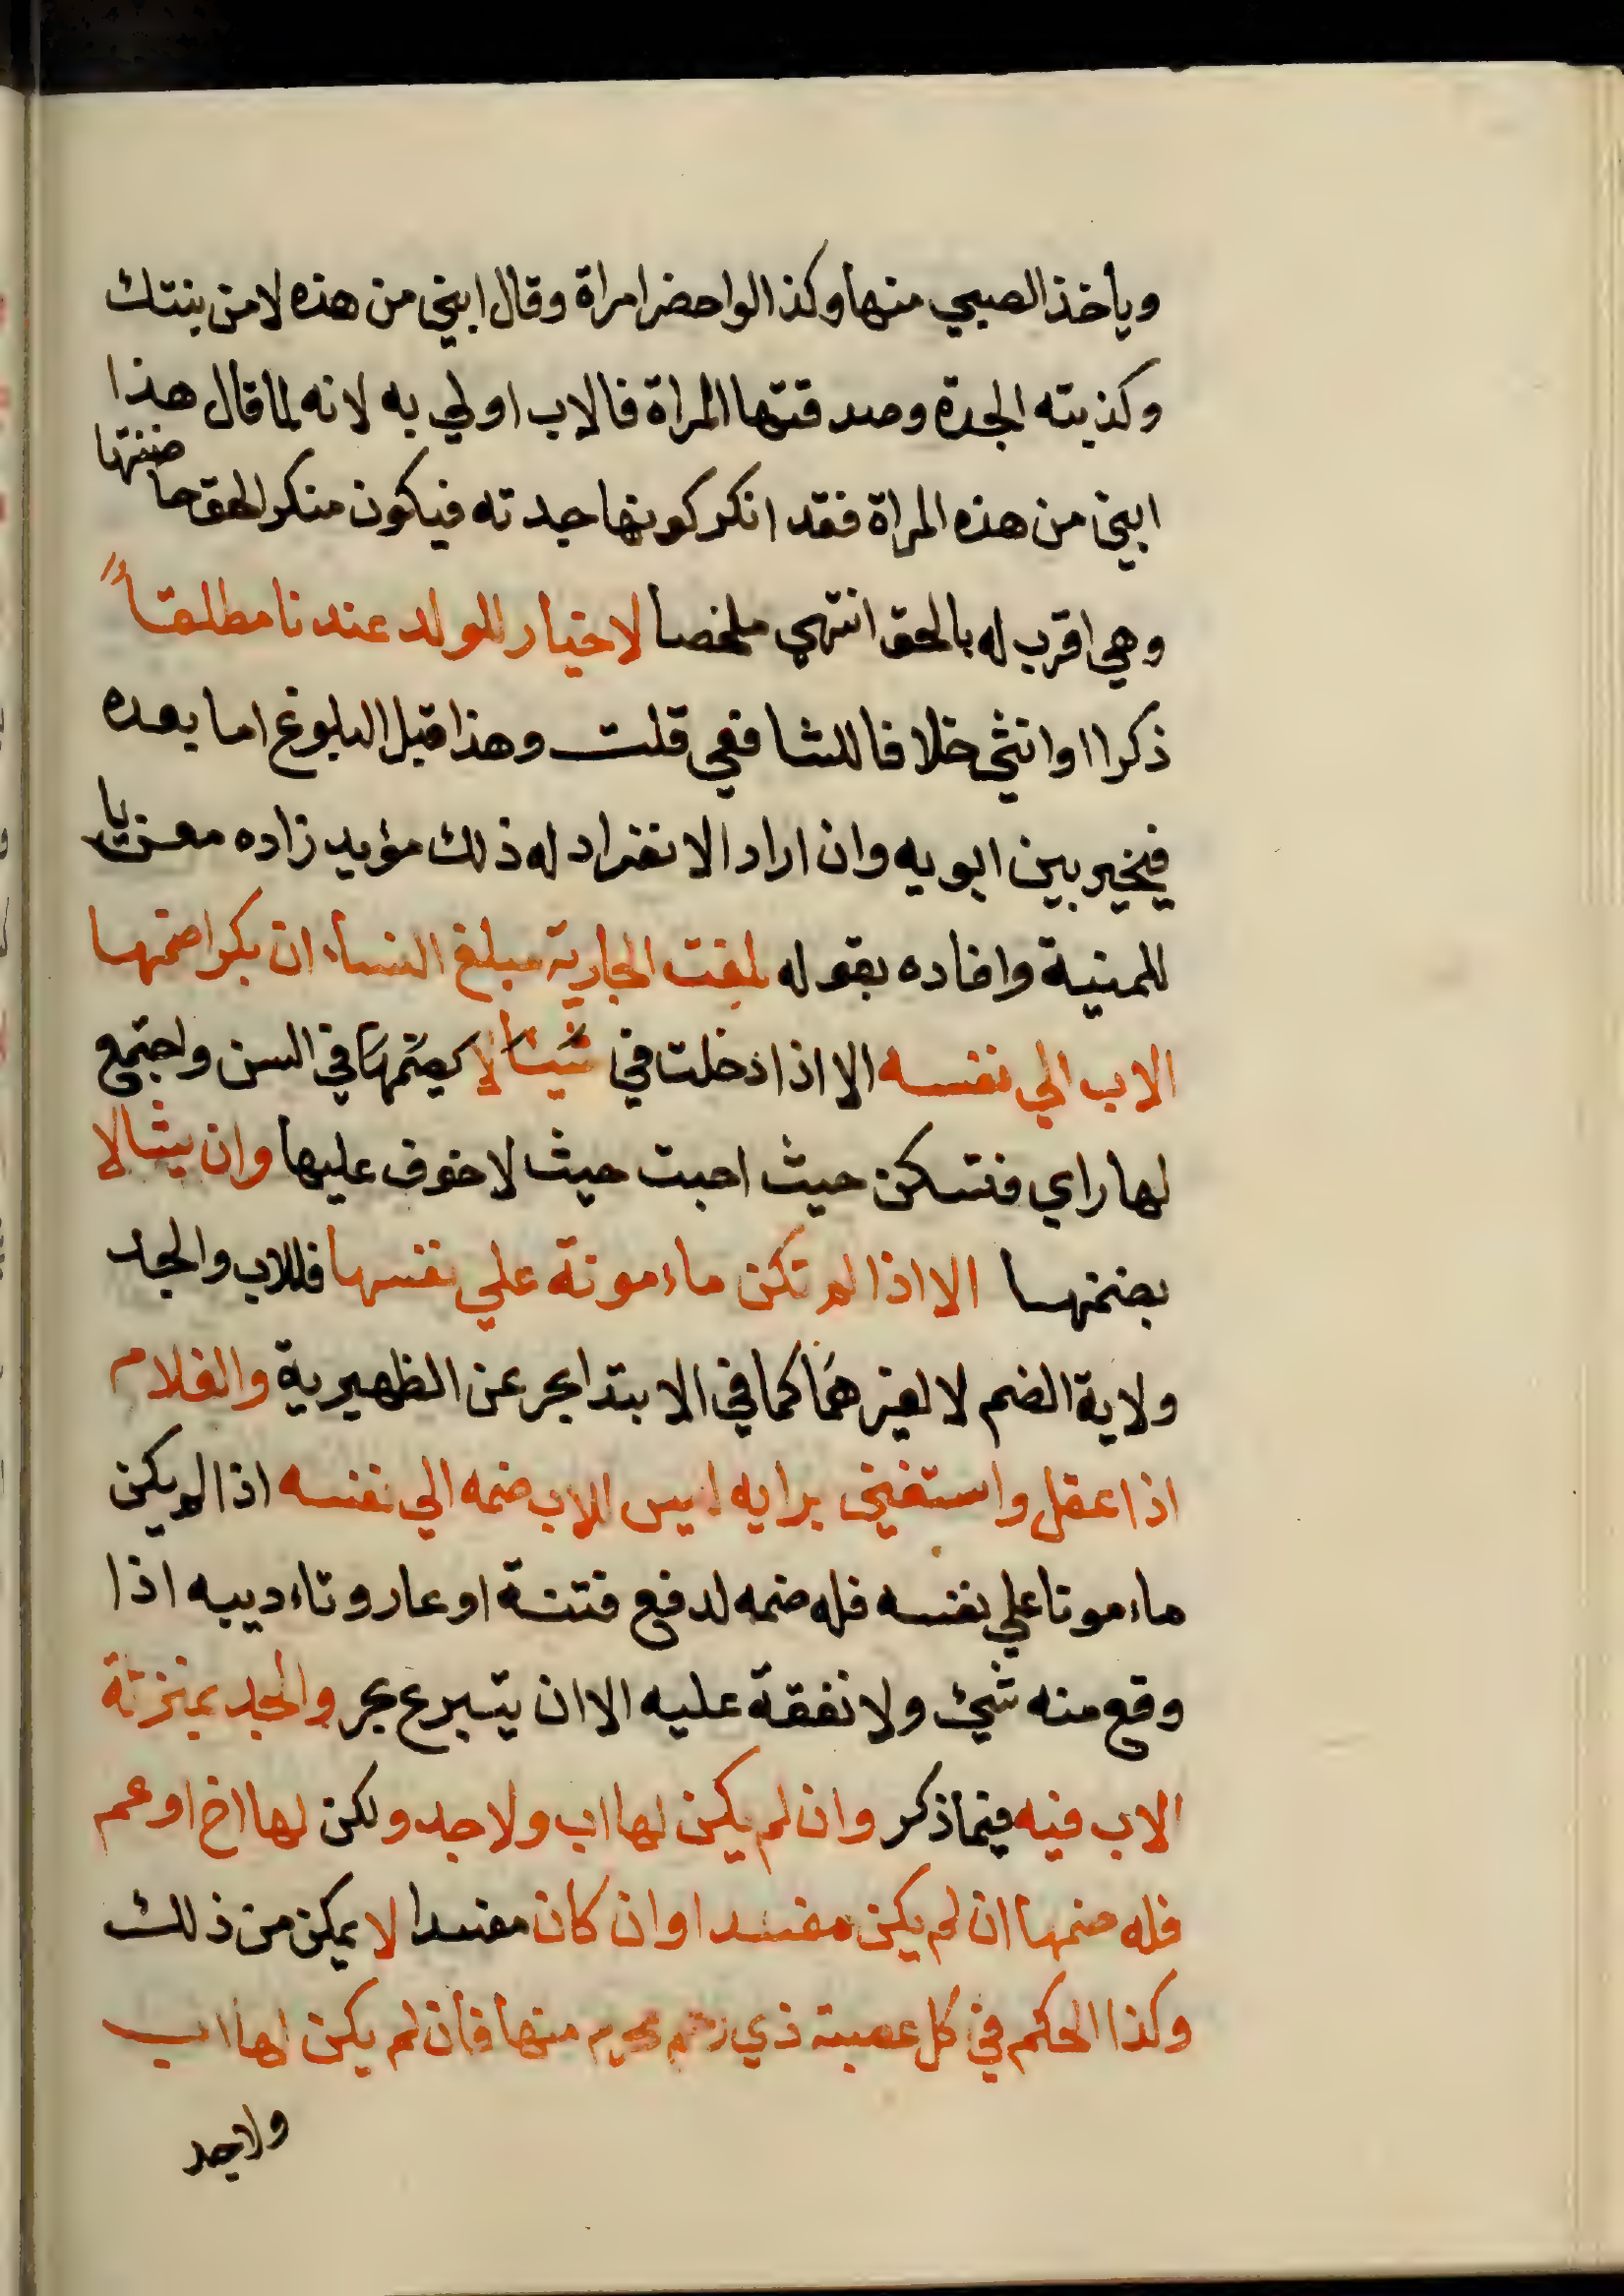 ويأخذ الصبي منها وكذا لو احضر امراة وقال ابني من هذه لا من بنتك
وكذبته الجدة وصدقتها المراة فالاب اولي به لانه لما قال هذا
ابني من هذه المراة فقد انكر كونها جدته فيكون منكرا لحق حاضنتها
وهي اقرب له بالحق انتهي ملخصا لاخيار للولد عندنا مطلقاً
ذكرا اوانثي خلافا للشافعي قلت وهذا قبل البلوغ اما بعده
فيخير بين ابويه وان اراد الانفراد له ذلك مؤيد زاده معزيا
للمنية وافاده بقوله بلغت الجارية مبلغ النساء ان بكرا ضمها
الاب الي نفسه الا اذا دخلت في السن واجتمع
لها راي فتسكن حيث احبت حيث لاخوف عليها وان ثيبا لا
يضمها الا اذا لم تكن ماءمونة علي نفسها فللاب والجد
ولاية الضم لا لغيرهما كما في الابتدا بحر عن الظهيرية والغلام
اذا عقل واستغني برايه ليس للاب ضمه الي نفسه اذا لم يكن
ماءمونا علي نفسه فله ضمه لدفع فتنة او عار وتاءديبه اذا
وقع منه شئ ولانفقة عليه الا ان يتبرع بحر والجد بمنزلة
الاب فيه فيما ذكر وان لم يكن لها اب ولاجد ولكن لها اخ اوعم
فله ضمها ان لم يكن مفسدا وان كان مفسدا لا يمكن من ذلك
وكذا الحكم في كل عصبة ذي رحم محرم منها فان لم يكن لها اب
ولاجد